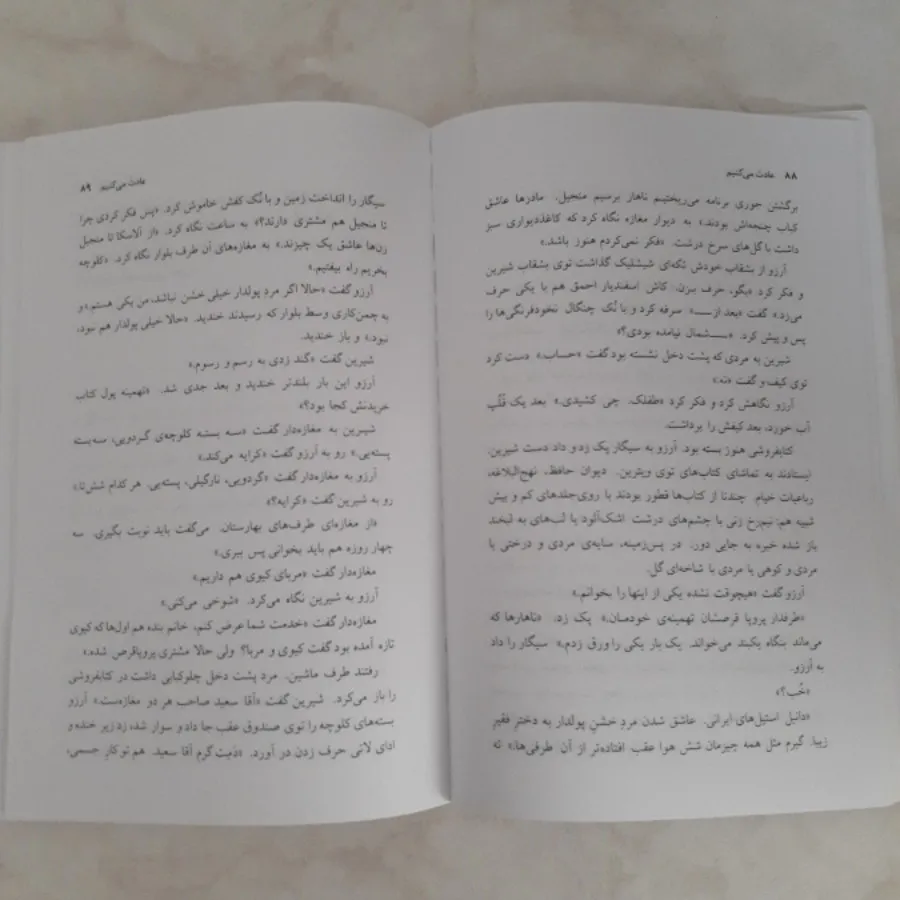 ۸۸ عادت می‌کنیم
برگشتن جوری برنامه می‌ریختیم ناهار برسیم منجیل. مادرها عاشق
کباب چنجه‌اش بودند.» به دیوار مغازه نگاه کرد که کاغذدیواری سبز
داشت با گل‌های سرخ درشت. «فکر نمی‌کردم هنوز باشد.»
آرزو از بشقاب خودش تکه‌ای شیشلیک گذاشت توی بشقاب شیرین
و فکر کرد «بگو، حرف بزن. کاش اسفندیار احمق هم با یکی حرف
می‌زد.» گفت «بعد از ــــ» سرفه کرد و با نُک چنگال نخودفرنگی‌ها را
پس و پیش کرد. «ــــ شمال نیامده بودی؟»
شیرین به مردی که پشت دخل نشسته بود گفت «حساب.» دست کرد
توی کیف و گفت «نه.»
آرزو نگاهش کرد و فکر کرد «طفلک. چی کشیدی.» بعد یک قُلُپ
آب خورد، بعد کیفش را برداشت.
کتابفروشی هنوز بسته بود. آرزو به سیگار پک زد و داد دست شیرین.
ایستادند به تماشای کتاب‌های توی ویترین. دیوان حافظ، نهج‌البلاغه،
رباعیات خیام. چندتا از کتاب‌ها قطور بودند با روی‌جلدهای کم و بیش
شبیه هم: نیم‌رخ زنی با چشم‌های درشت اشک‌آلود یا لب‌های به لبخند
باز شده خیره به جایی دور. در پس‌زمینه، سایه‌ی مردی و درختی یا
مردی و کوهی یا مردی با شاخه‌ای گل.
آرزو گفت «هیچوقت نشده یکی از اینها را بخوانم.»
«طرفدار پروپا قرصشان تهمینه‌ی خودمان.» پک زد. «ناهارها که
می‌ماند بنگاه یکبند می‌خواند. یک بار یکی را ورق زدم.» سیگار را داد
به آرزو.
«خُب؟»
«دانیل استیل‌های ایرانی. عاشق شدن مردِ خشنِ پولدار به دخترِ فقیرِ
زیبا. گیرم مثل همه چیزمان شش هوا عقب افتاده‌تر از آن طرفی‌ها.» ته
عادت می‌کنیم ۸۹
سیگار را انداخت زمین و با نُک کفش خاموش کرد. «پس فکر کردی چرا
تا منجیل هم مشتری دارند؟» به ساعت نگاه کرد. «از آلاسکا تا منجیل
زن‌ها عاشق یک چیزند.» به مغازه‌های آن طرف بلوار نگاه کرد. «کلوچه
بخریم راه بیفتیم.»
آرزو گفت «حالا اگر مردِ پولدار خیلی خشن نباشد، من یکی هستم.» و
به چمن‌کاری وسط بلوار که رسیدند خندید. «حالا خیلی پولدار هم نبود،
نبود.» و باز خندید.
شیرین گفت «گند زدی به رسم و رسوم.»
آرزو این بار بلندتر خندید و بعد جدی شد. «تهمینه پول کتاب
خریدنش کجا بود؟»
شیرین به مغازه‌دار گفت «سه بسته کلوچه‌ی گردویی، سه‌بسته
پسته‌یی.» رو به آرزو گفت «کرایه می‌کند.»
آرزو به مغازه‌دار گفت «گردویی، نارگیلی، پسته‌یی. هر کدام شش‌تا.»
رو به شیرین گفت «کرایه؟»
«از مغازه‌ای طرف‌های بهارستان. می‌گفت باید نوبت بگیری. سه
چهار روزه هم باید بخوانی پس ببری.»
مغازه‌دار گفت «مربای کیوی هم داریم.»
آرزو به شیرین نگاه می‌کرد. «شوخی می‌کنی.»
مغازه‌دار گفت «خدمت شما عرض کنم، خانم بنده هم اول‌ها که کیوی
تازه آمده بود گفت کیوی و مربا؟ ولی حالا مشتری پروپاقرص شده.»
رفتند طرف ماشین. مرد پشت دخل چلوکبابی داشت در کتابفروشی
را باز می‌کرد. شیرین گفت «آقا سعید صاحب هر دو مغازه‌ست» آرزو
بسته‌های کلوچه را توی صندوق عقب جا داد و سوار شد، زد زیر خنده و
ادای لاتی حرف زدن در آورد. «دَمِت گرم آقا سعید. هم تو کارِ جسمی،